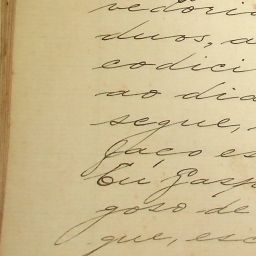 vedoria
duos, a
codici
ao dia
segue,
faço es
Eu Gasp
goso de
que, esc